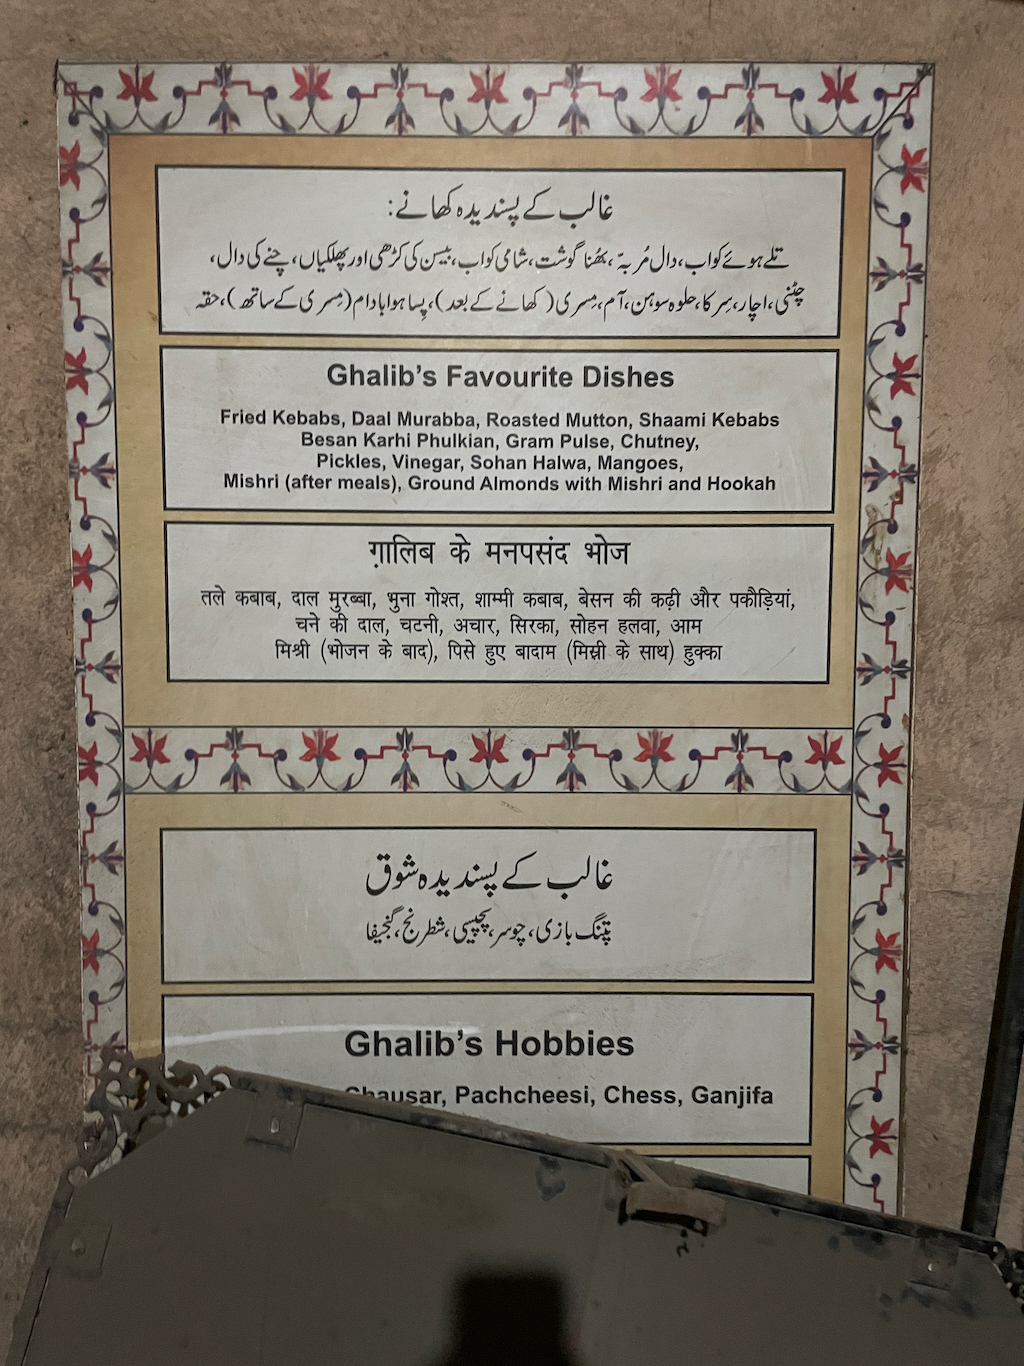 غالب کے پسندیدہ کھانے:
تلے ہوئے کواب، دال مُربہّ، بھُنا گوشت، شامی کواب، بیسن کی کڑھی اور پھلکیاں، چنے کی دال،
چٹنی، اچار، سِرکا، حلوہ سوہن، آم، مِسری (کھانے کے بعد)، پِسا ہوا بادام (مِسری کے ساتھ)، حقہ
Ghalib's Favourite Dishes
Fried Kebabs, Daal Murabba, Roasted Mutton, Shaami Kebabs
Besan Karhi Phulkian, Gram Pulse, Chutney,
Pickles, Vinegar, Sohan Halwa, Mangoes,
Mishri (after meals), Ground Almonds with Mishri and Hookah
ग़ालिब के मनपसंद भोज
तले कबाब, दाल मुरब्बा, भुना गोश्त, शाम्मी कबाब, बेसन की कढ़ी और पकौड़ियां,
चने की दाल, चटनी, अचार, सिरका, सोहन हलवा, आम
मिश्री (भोजन के बाद), पिसे हुए बादाम (मिस्री के साथ) हुक्का
غالب کے پسندیدہ شوق
پتنگ بازی، چوسر، پچیسی، شطرنج، گنجیفا
Ghalib's Hobbies
Chausar, Pachcheesi, Chess, Ganjifa